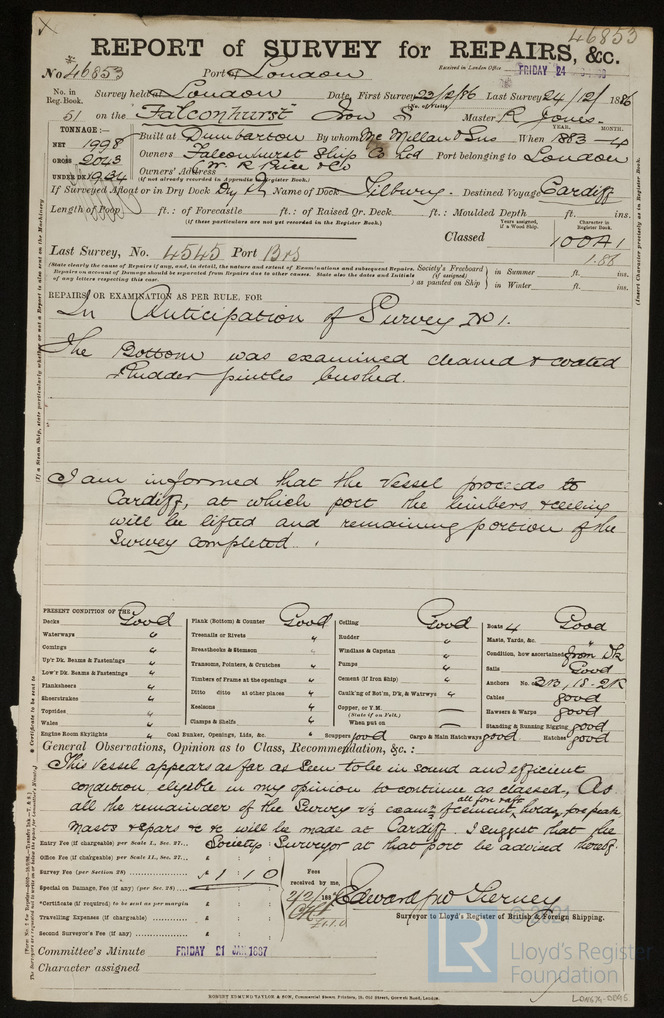 46853
REPORT of SURVEY for REPAIRS, &c.
No. 46853 Port of London Received in London Office FRIDAY 24
No. in Reg. Book. Survey held at London Date, First Survey 22/12/86 Last Survey 24/12/1886
51 on the "Falconhurst" Iron S Master R Jones
TONNAGE:—
NET 1998
GROSS 2043
UNDER DK 1934
Built at Dumbarton By whom Mc Millan & Sns When 1883—4
YEAR. MONTH.
Owners Falconhurst Ship Co Ltd Port belonging to London
Owners' Address W. R. Price & Co
(If not already recorded in Appendix to Register Book.)
If Surveyed Afloat or in Dry Dock Dry Dk Name of Dock Tilbury. Destined Voyage Cardiff
Length of Poop ft.: of Forecastle ft.: of Raised Qr. Deck ft.: Moulded Depth ft. ins.
(If these particulars are not yet recorded in the Register Book.)
Years assigned, if a Wood Ship. Character in Register Book.
Classed 100A1
1.88
Last Survey, No. 4545 Port Brs
(State clearly the cause of Repairs if any, and, in detail, the nature and extent of Examinations and subsequent Repairs.
Repairs on account of Damage should be separated from Repairs due to other causes. State also the dates and Initials of any letters respecting this case.
Society's Freeboard (if assigned) as painted on Ship } in Summer ft. ins.
in Winter ft. ins.
REPAIRS, OR EXAMINATION AS PER RULE, FOR
In Anticipation of Survey No 1.
The Bottom was examined cleaned & coated
& Rudder pintles bushed.
I am informed that the Vessel proceeds to
Cardiff, at which port the limbers & ceiling
will be lifted and remaining portion of the
Survey completed.
PRESENT CONDITION OF THE
Decks Good
Waterways "
Comings "
Up'r Dk. Beams & Fastenings "
Low'r Dk. Beams & Fastenings "
Planksheers "
Sheerstrakes "
Topsides "
Wales "
Engine Room Skylights "
Plank (Bottom) & Counter Good
Treenails or Rivets "
Breasthooks & Stemson "
Transoms, Pointers, & Crutches "
Timbers of Frame at the openings "
Ditto ditto at other places "
Keelsons "
Clamps & Shelfs "
Coal Bunker, Openings, Lids, &c. "
Ceiling Good
Rudder "
Windlass & Capstan "
Pumps "
Cement (if Iron Ship) "
Caulk'ng of Bot'm, D'k, & Watrwys "
Copper, or Y.M. —
(State if on Felt.)
When put on —
Scuppers good Cargo & Main Hatchways good Hatches good
Boats 4 Good
Masts, Yards, &c. "
Condition, how ascertained from Dk
Sails Good
Anchors No. of 3B, 1S. 2K
Cables good
Hawsers & Warps good
Standing & Running Rigging good
General Observations, Opinion as to Class, Recommendation, &c.:
This Vessel appears as far as seen to be in sound and efficient
condition, eligible in my opinion to continue as classed, As
all the remainder of the Survey viz examn of cement, holds, all fore & aft fore peak
Masts & spars &c &c will be made at Cardiff. I suggest that the
Society's Surveyor at that port be advised thereof.
Entry Fee (if chargeable) per Scale I., Sec. 27... £ : :
Office Fee (if chargeable) per Scale II., Sec. 27... £ : :
Survey Fee (per Section 28) £ 1 : 1 : 0
Special on Damage, Fee (if any) (per Sec. 28) £ : :
*Certificate (if required) to be sent as per margin
Travelling Expenses (if chargeable) £ : :
Second Surveyor's Fee (if any) £ : :
Fees received by me,
2/2/1887
£1.1.0
Edward Jno Tierney
Surveyor to Lloyd's Register of British & Foreign Shipping.
Committee's Minute FRIDAY 21 JAN 1887
Character assigned
ROBERT EDMUND TAYLOR & SON, Commercial Steam Printers, 19, Old Street, Goswell Road, London.
© 2021
LR
Lloyd's Register
Foundation
LON674-0095